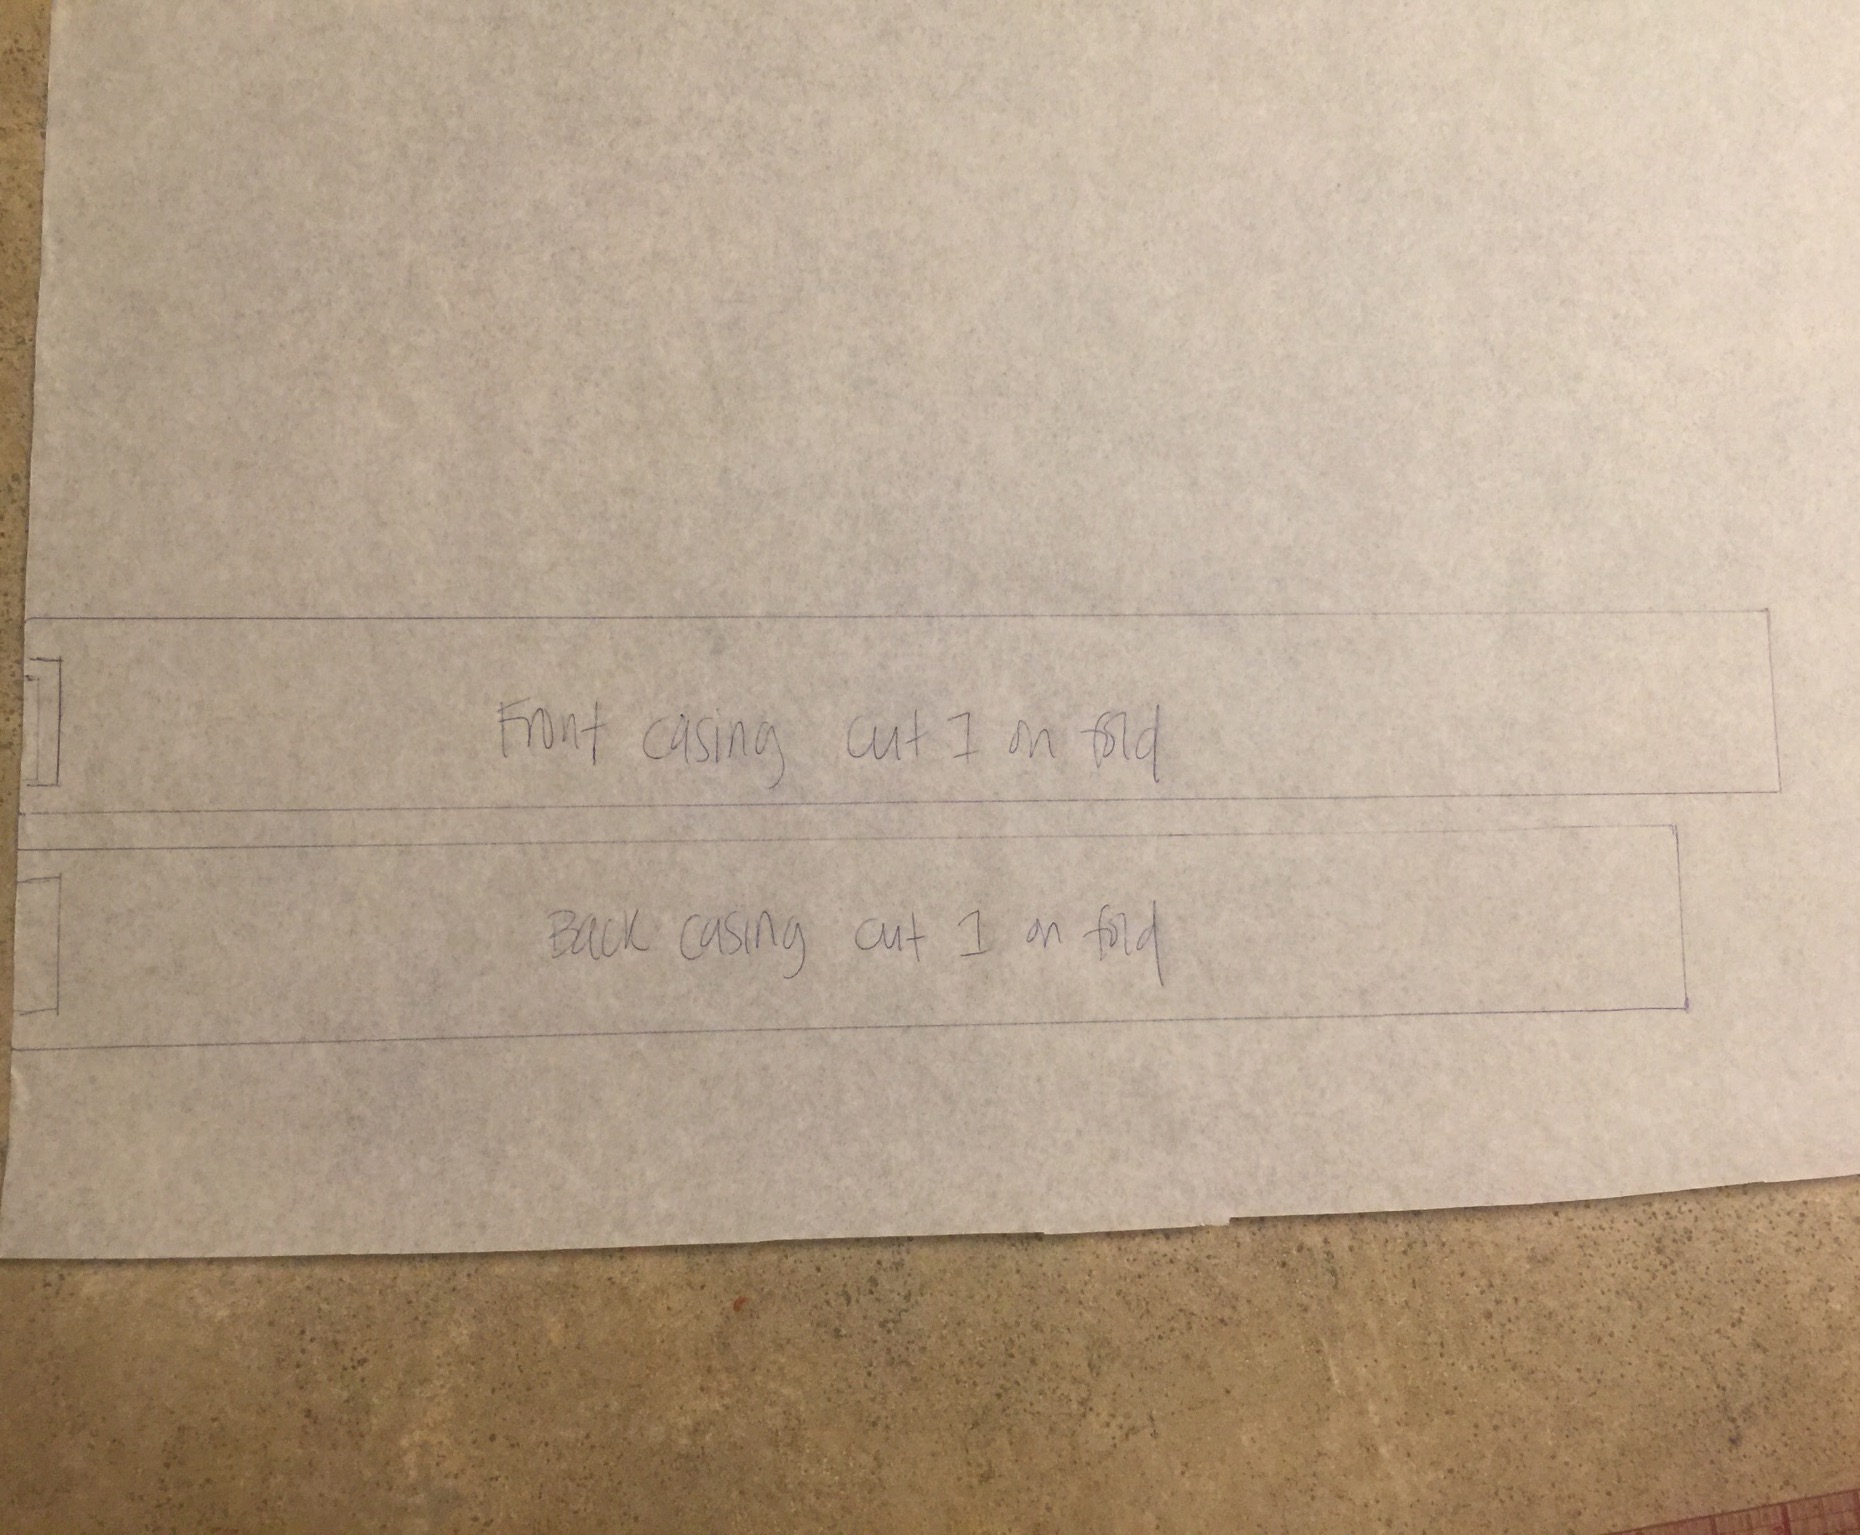 Front casing cut 1 on fold
Back casing cut 1 on fold